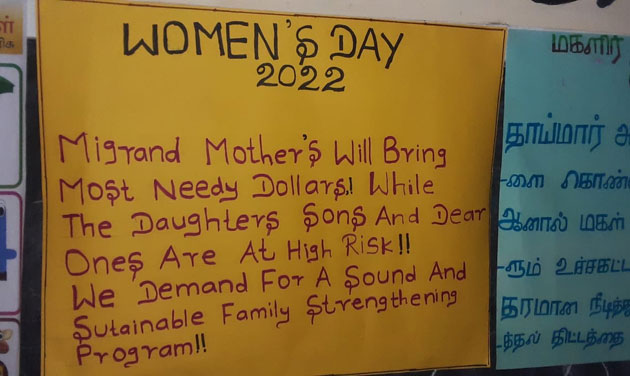 WOMEN'S DAY
2022
Migrand Mother's Will Bring
Most Needy Dollars.! While
The Daughters Sons And Dear
Ones Are At High Risk!!
We Demand For A Sound And
Sutainable Family Strengthening
Program!!
மகளிர்
தாய்மார்
-ளை
ஆனால் மகள்
-ளும் உச்சகட்ட
தரமான
-த்தல் திட்டத்தை